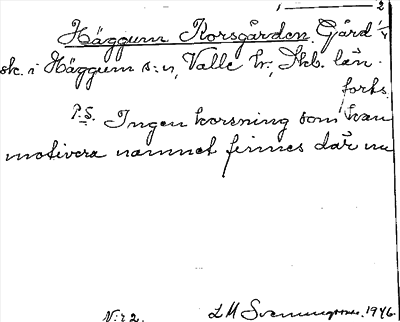 1 ——— 2
Häggum Korsgården. Gård 1/4
sk. i Häggum s:n, Valle hd, Skb. län.
forts.
P.S. Ingen korsning som kan
motivera namnet finnes där nu
N:r 2. L M Svenungsson. 1946.